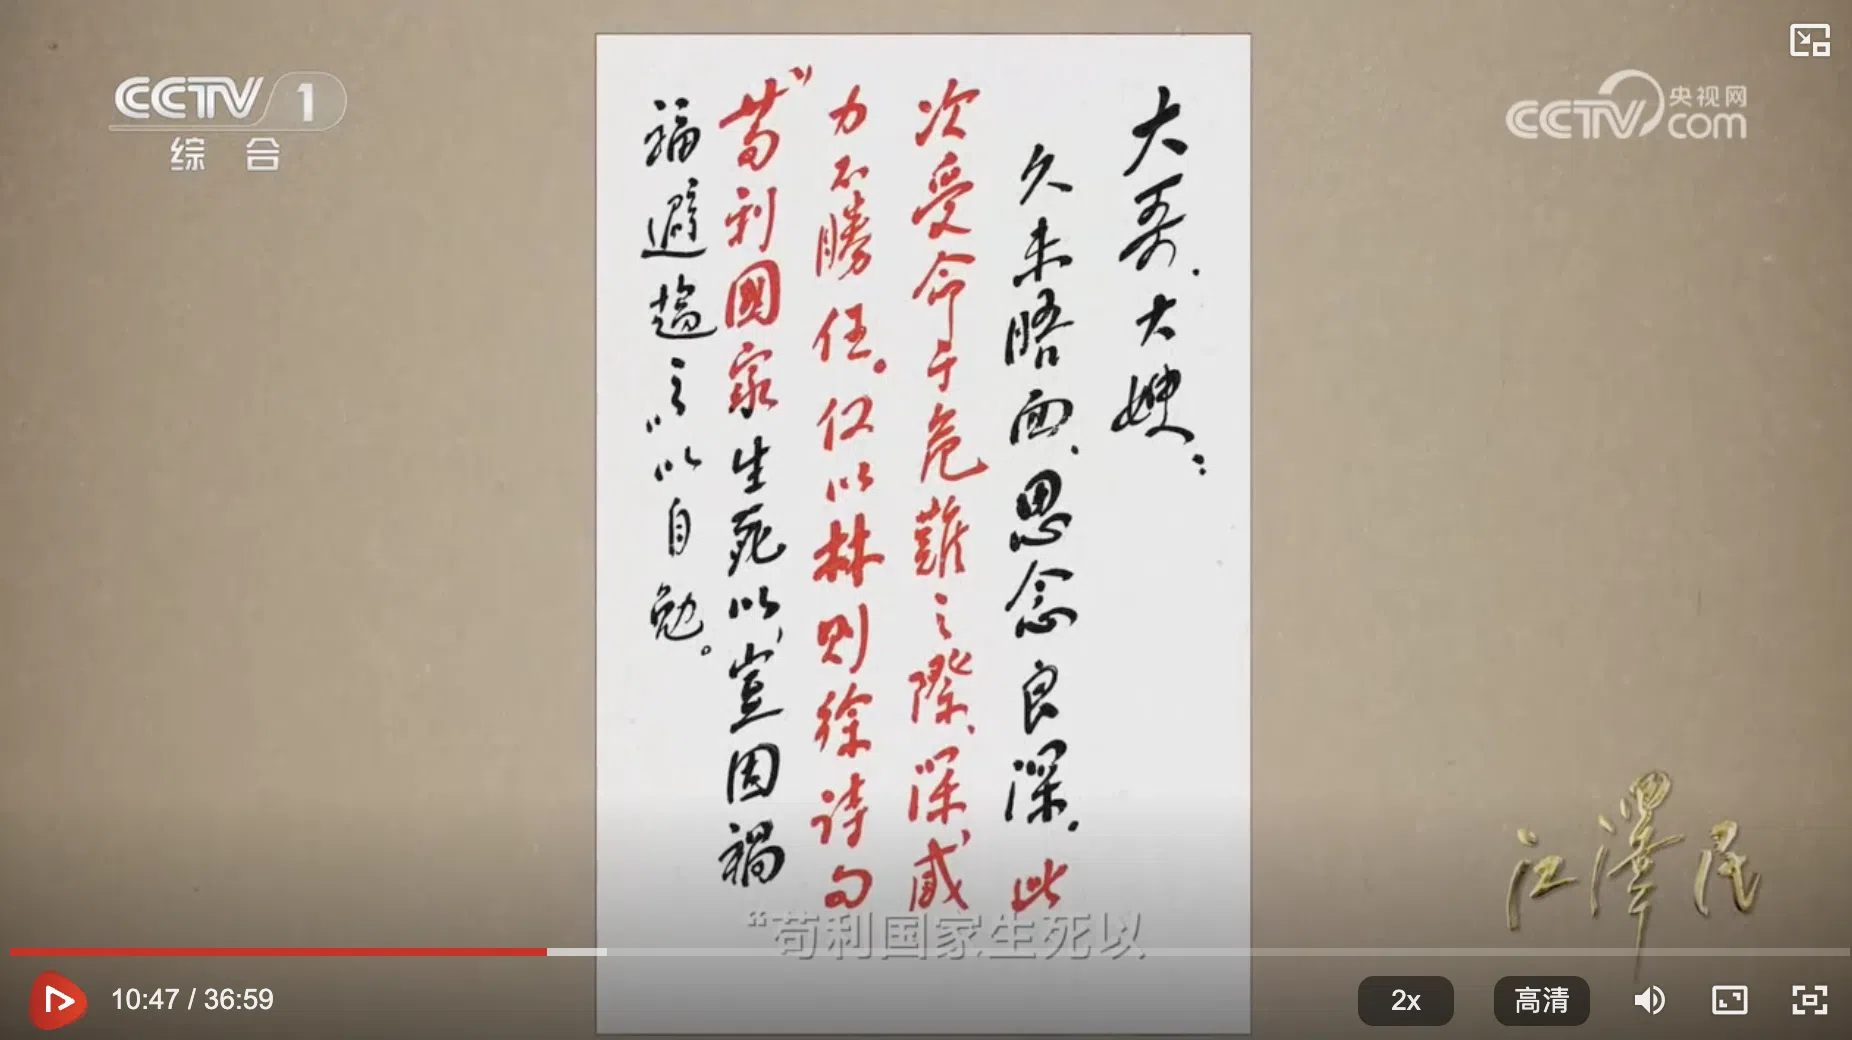 CCTV 1
综合
央视网
CCTV com
大哥、大嫂：
久未晤面、思念良深，此
次受命于危难之际、深感
力不勝任。仅以林则徐诗句
“苟利國家生死以，豈因禍
福避趋之”以自勉。
江澤民
“苟利国家生死以
10:47 / 36:59
2x
高清